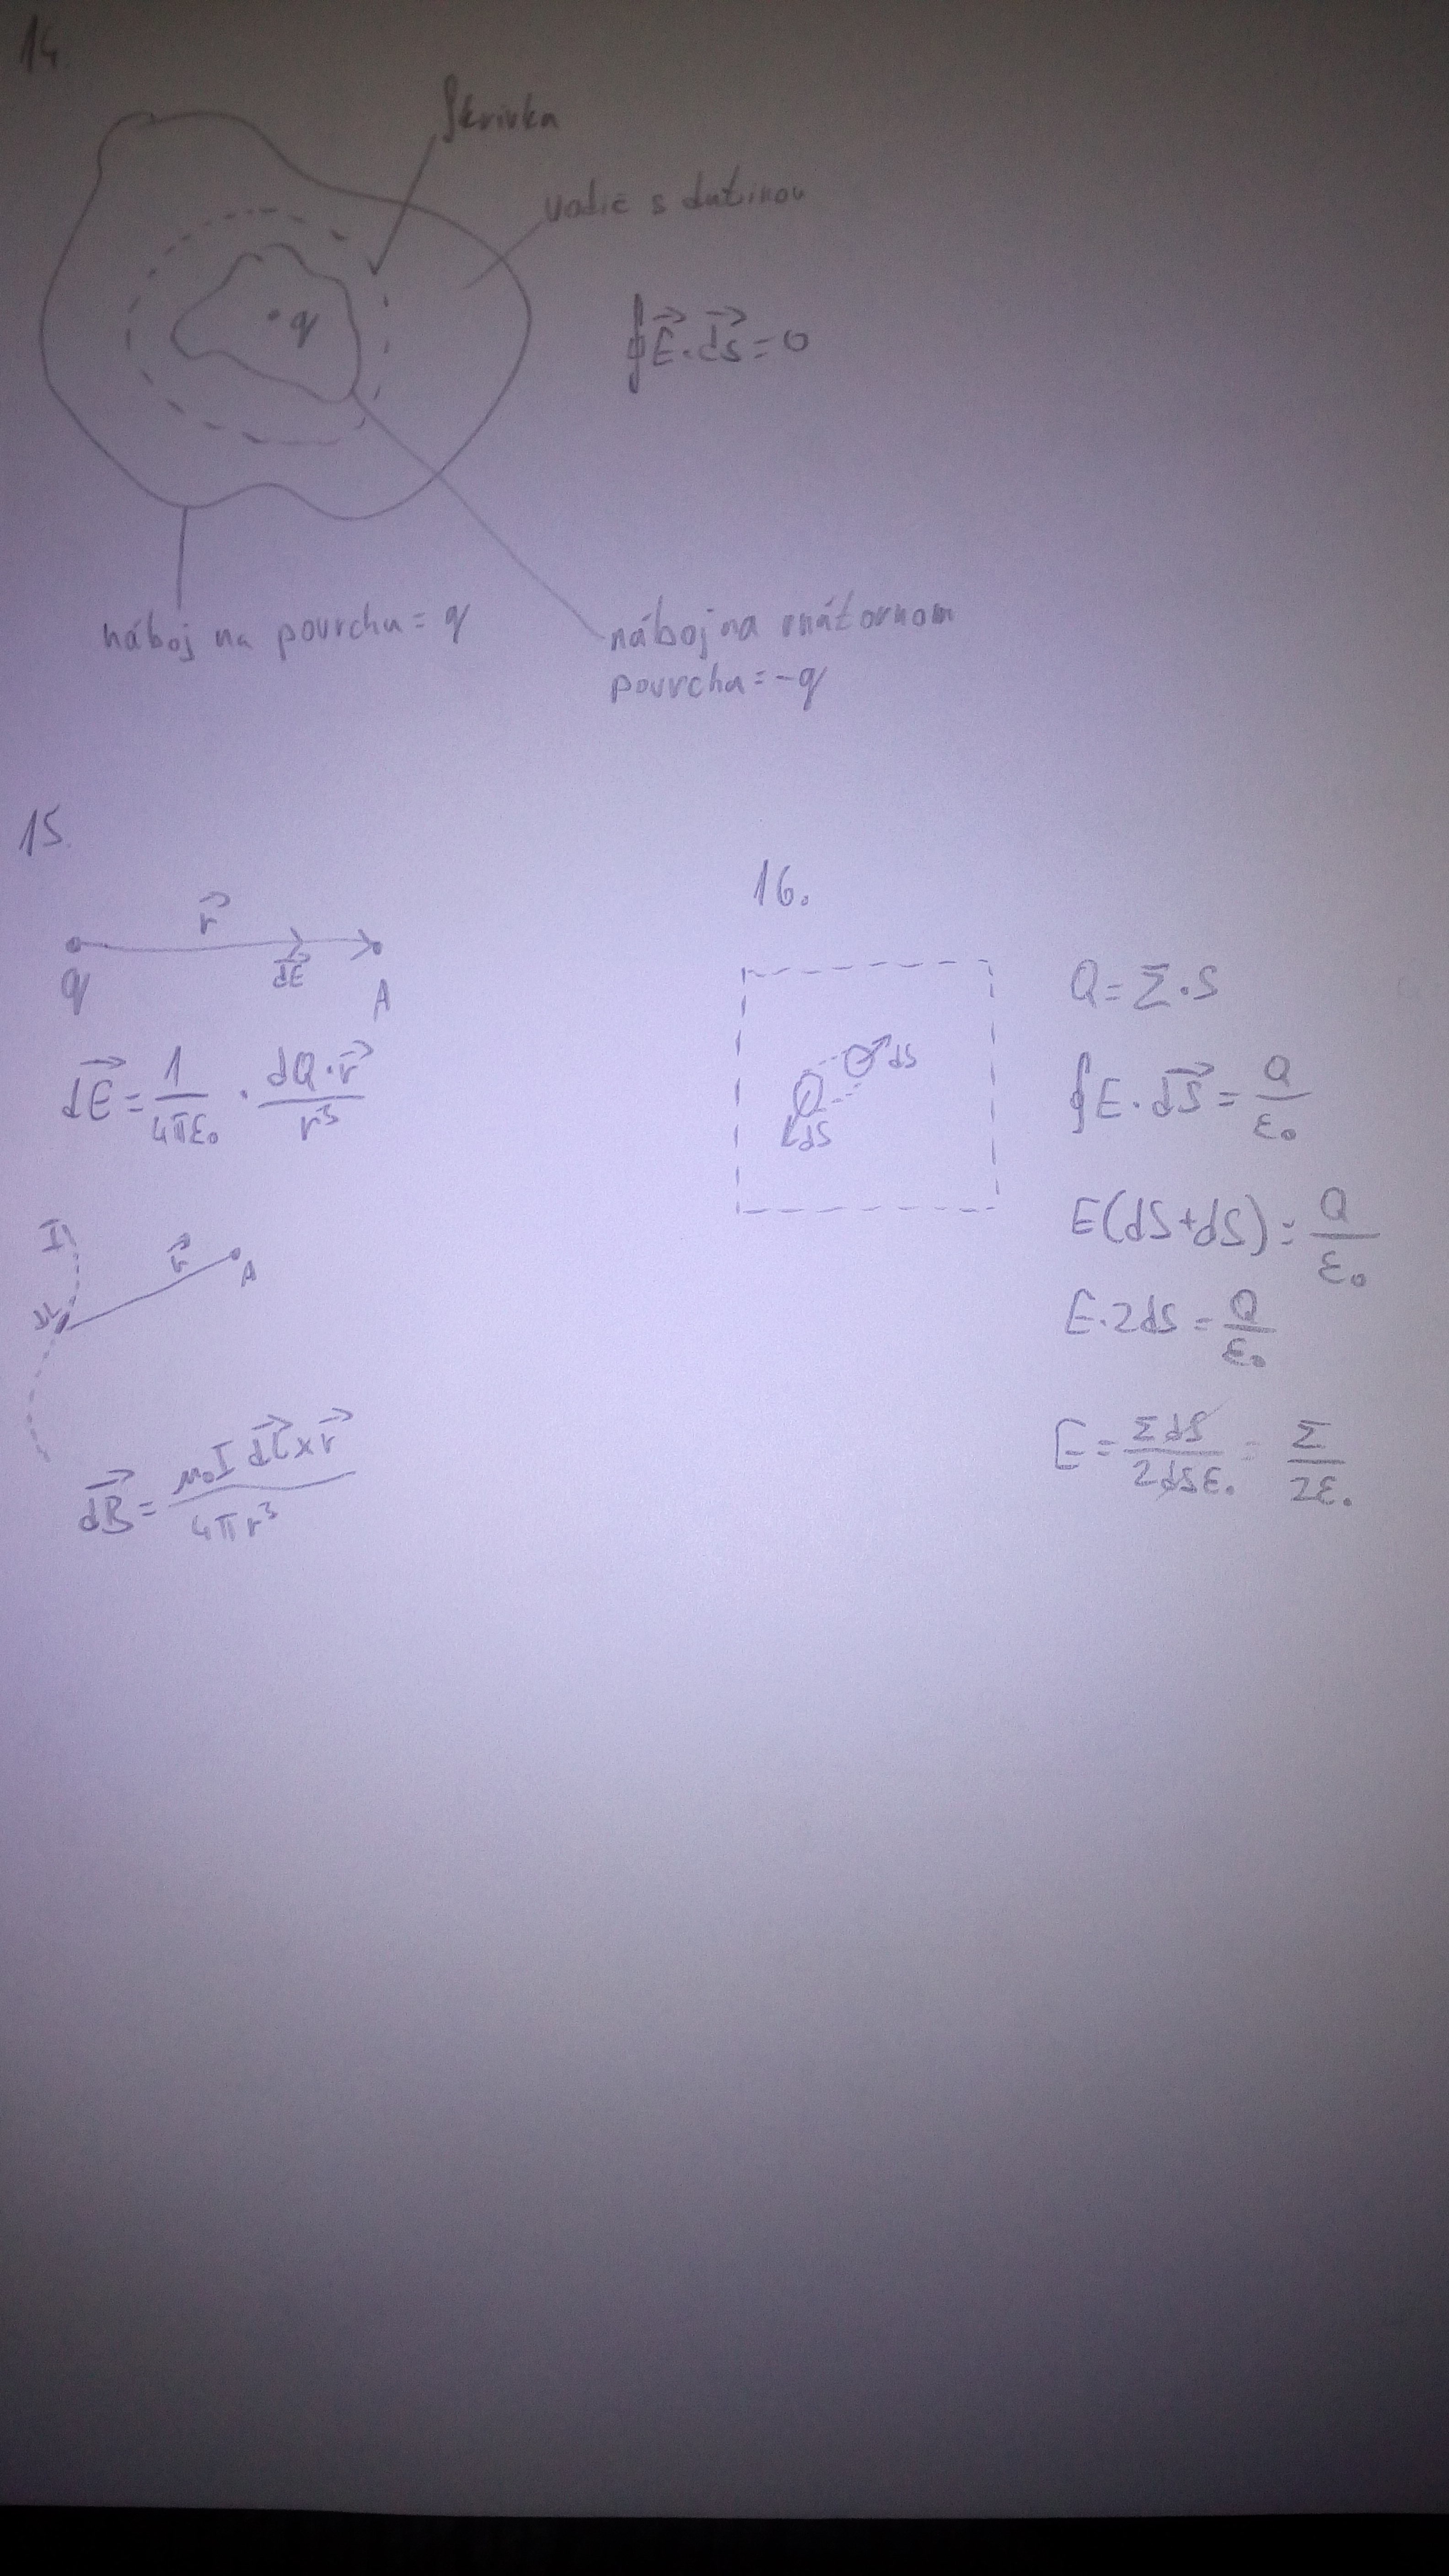 14.
∮krivka
vodič s dutinou
q
∮E⃗·dS⃗=0
náboj na povrchu = q
náboj na vnútornom
povrchu = -q
15.
r⃗
q dE⃗ A
dE⃗ = 1/4πε₀ · dQ·r⃗/r³
I
r⃗
A
dl
dB⃗ = μ₀I dl⃗×r⃗/4πr³
16.
dS
dS
Q=Σ·S
∮E·dS⃗=Q/ε₀
E(dS+dS)=Q/ε₀
E·2dS=Q/ε₀
E=ΣdS/2dSε₀=Σ/2ε₀